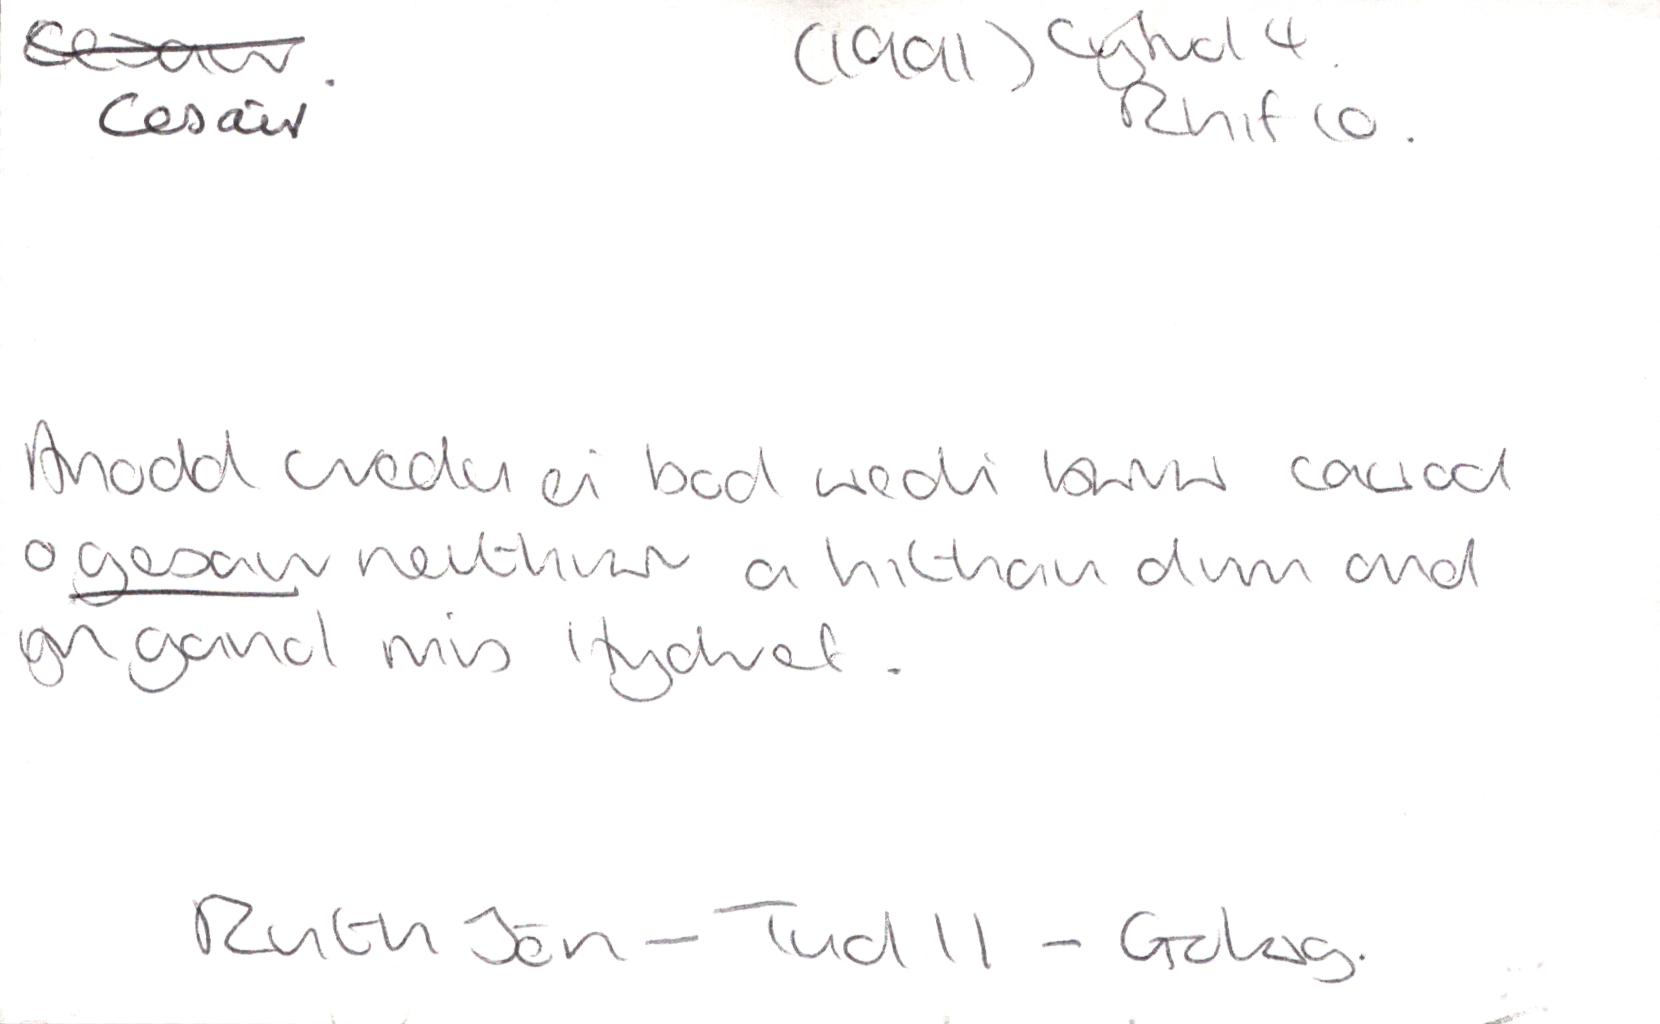 Cesair.
(1991) Cyfrol 4.
Cesair
Rhif 10.
Anodd credu ei bod wedi bwrw cawod
o gesair neithiwr a hithau dim ond
yn ganol mis Hydref.
Ruth Jên – Tud 11 – Golwg.